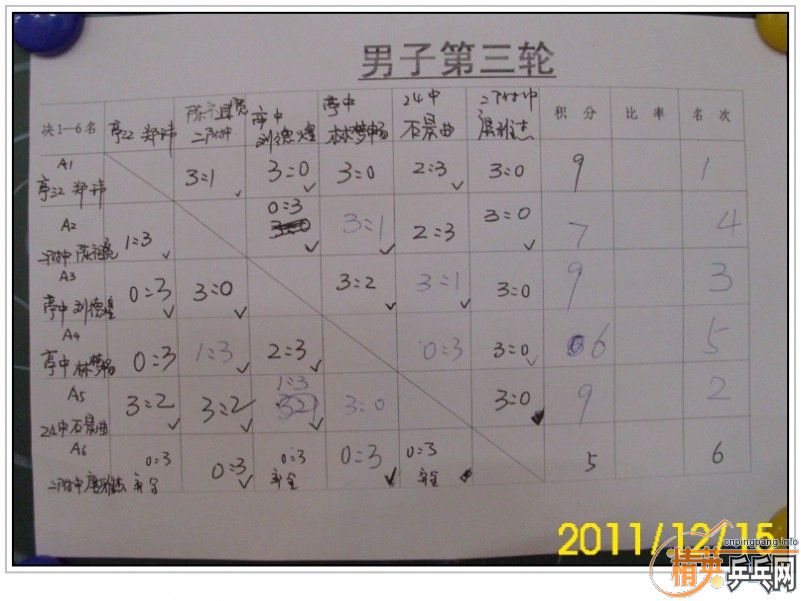 男子第三轮
决1-6名 亭江 郑玮 陈祖冕 二附中 亭中 刘德煌 亭中 林梦畅 24中 石晨曲 二附中 积分 比率 名次
A1 亭江 郑玮 3:1 3:0 3:0 2:3 3:0 9 1
A2 二附中 1:3 0:3 3:1 2:3 3:0 7 4
A3 亭中 刘德煌 0:3 3:0 3:2 3:1 3:0 9 3
A4 亭中 林梦畅 0:3 1:3 2:3 0:3 3:0 6 5
A5 24中 石晨曲 3:2 3:2 1:3 3:0 3:0 9 2
A6 二附中 0:3 弃全 0:3 0:3 弃全 0:3 0:3 弃全 5 6
2011/12/15
cnpingpang.info
精英乒乓网